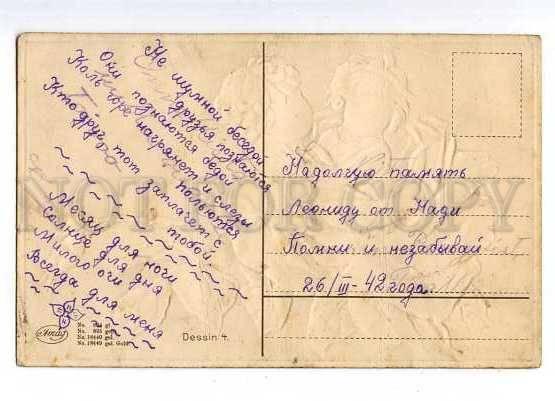 Не шумной беседой
друзья познаются
Они познаются бедой
Коль горе нагрянет и слезы
польются
Кто друг тот заплачет с
тобой.
Месяц для ночи
солнце для дня
Милого очи
Всегда для меня
Надолгую память
Леониду от Нади
Помни и незабывай
26/III - 42 года.
Amag
Dessin 4.
NOT FOR COPY